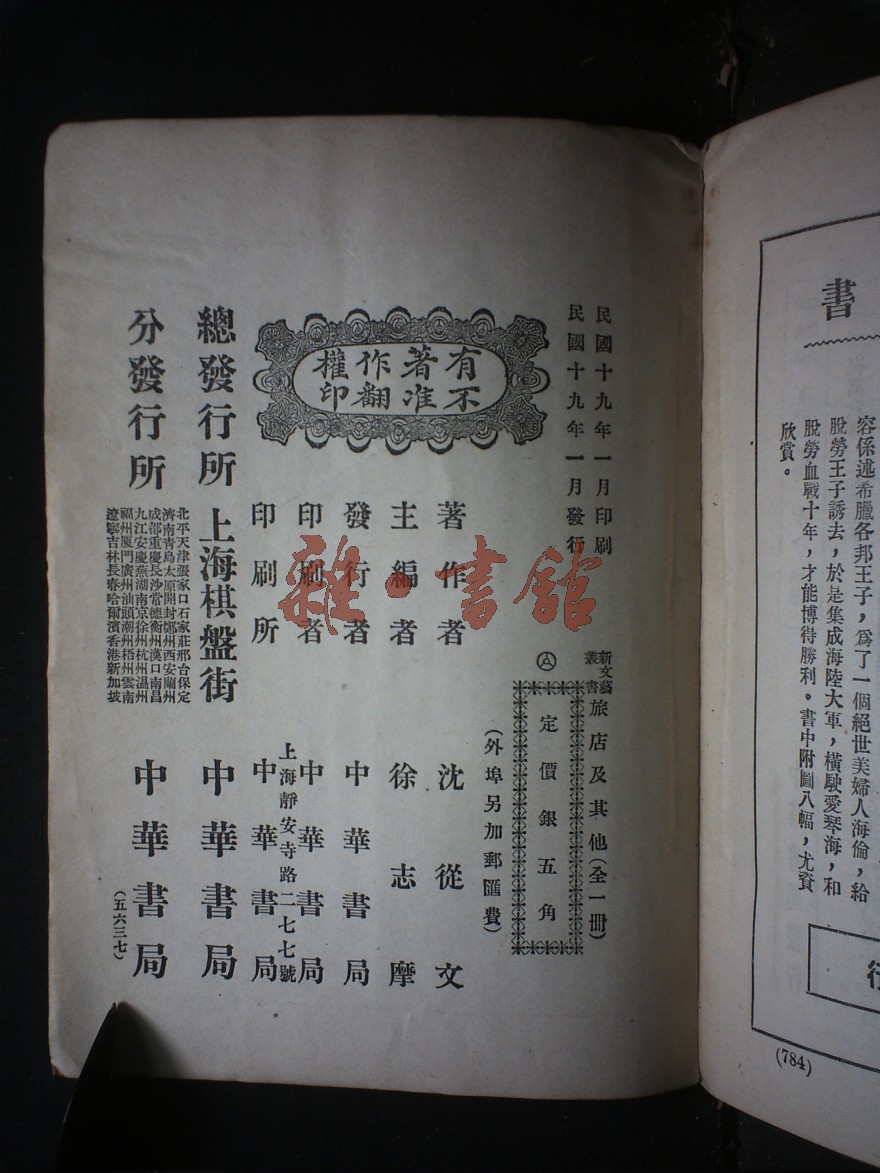 民國十九年一月印刷
民國十九年一月發行
新文藝叢書
旅店及其他(全一冊)
定價銀五角
(外埠另加郵匯費)
有著作權
不准翻印
著作者 沈從文
主編者 徐志摩
發行者 中華書局
印刷者 中華書局
上海靜安寺路二七七號
印刷所 中華書局
總發行所 上海棋盤街 中華書局
分發行所 中華書局
北平天津張家口石家莊邢台保定
濟南青島太原開封鄭州西安蘭州
成都重慶長沙常德衡州漢口南昌
九江安慶蕪湖南京徐州杭州溫州
福州厦門廣州汕頭潮州梧州雲南
遼寧吉林長春哈爾濱香港新加坡
(五六三七)
雜·書館
書
容係述希臘各邦王子,爲了一個絕世美婦人海倫,給
脫勞王子誘去,於是集成海陸大軍,橫駛愛琴海,和
脫勞血戰十年,才能博得勝利。書中附圖八幅,尤資
欣賞。
行
(784)